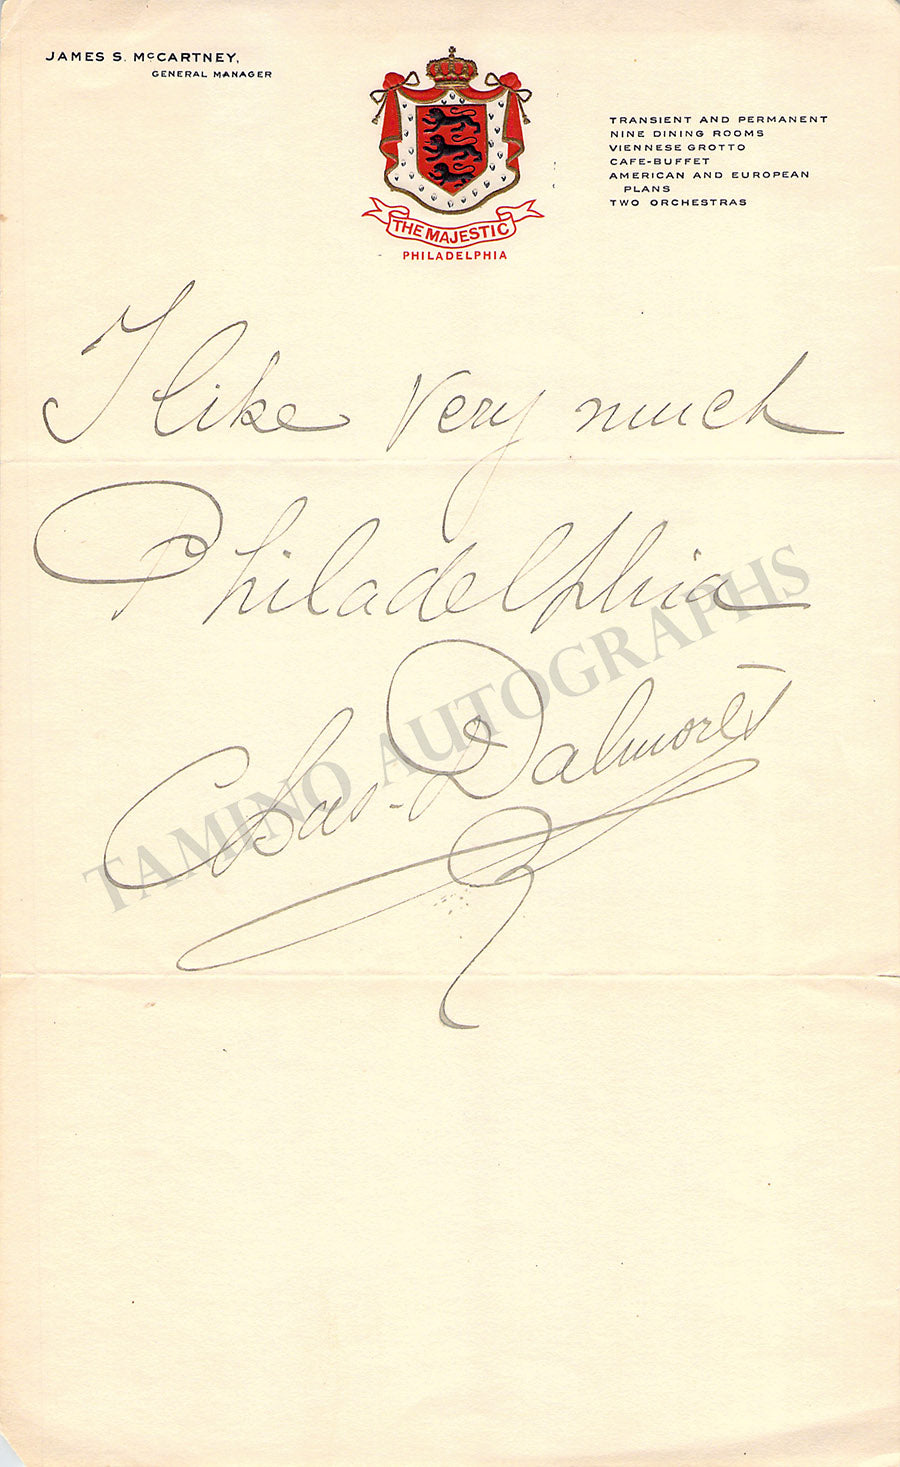 JAMES S. McCARTNEY,
GENERAL MANAGER
THE MAJESTIC
PHILADELPHIA
TRANSIENT AND PERMANENT
NINE DINING ROOMS
VIENNESE GROTTO
CAFE-BUFFET
AMERICAN AND EUROPEAN
PLANS
TWO ORCHESTRAS
I like very much
Philadelphia
Chas-Dalmorès
TAMINO AUTOGRAPHS